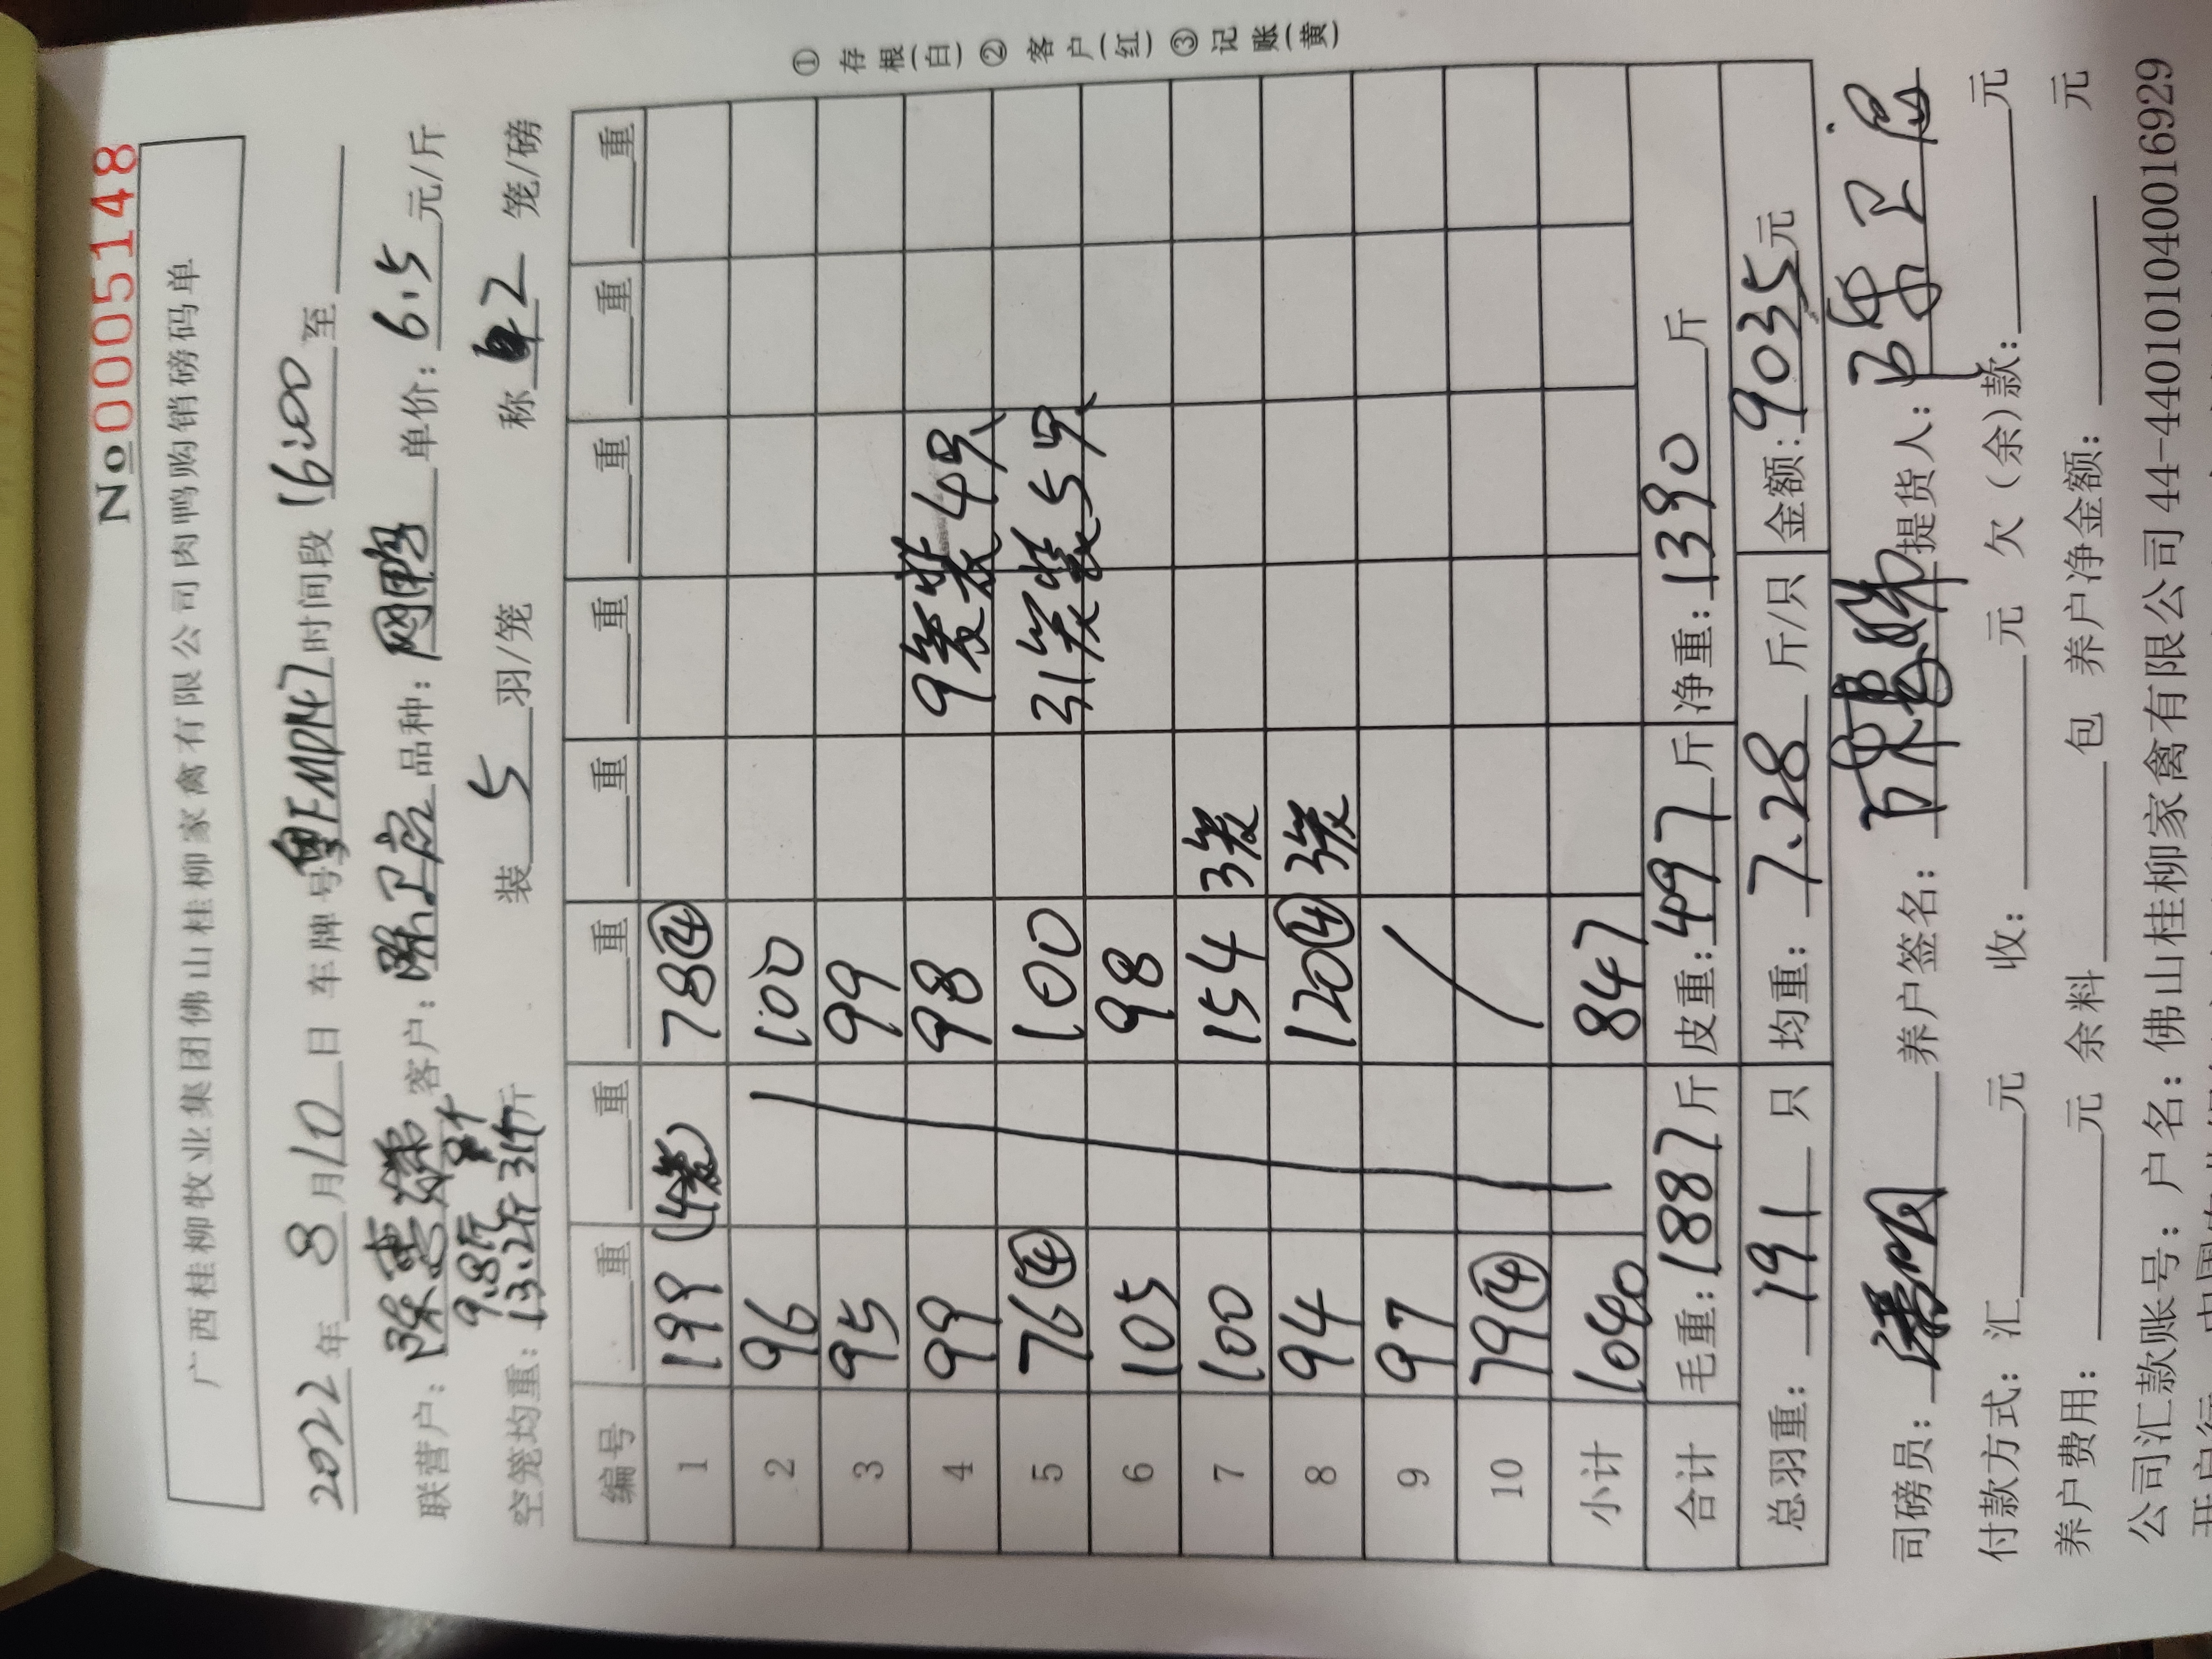 №0005148
广西桂柳牧业集团佛山桂柳家禽有限公司肉鸭购销磅码单
2022年 8月10日 车牌号粤EMD147时间段16:00至
联营户：陈惠娣 客户：陈卫宏 品种：网鸭 单价：6.5元/斤
9.8斤 9个
空笼均重：13.2斤 31个斤 装 5 羽/笼 称 2 笼/磅
编号 重 重 重 重 重 重 重 重
1 199 (4笼) 78④
2 96 100
3 95 99
4 99 98 9笼装4只
5 76④ 100 31笼装5只
6 105 98
7 100 154 3笼
8 94 120④ 3笼
9 97
10 79④
小计 1040 847
合计 毛重：1887斤 皮重：497斤 净重：1390斤
总羽重：191只 均重：7.28斤/只 金额：9035元
司磅员： 养户签名： 提货人：陈卫宏
付款方式：汇 元 收： 元 欠（余）款： 元
养户费用： 元 余料 包 养户净金额： 元
公司汇款账号：户名：佛山桂柳家禽有限公司 44-440101040016929
①存根(白) ②客户(红) ③记账(黄)